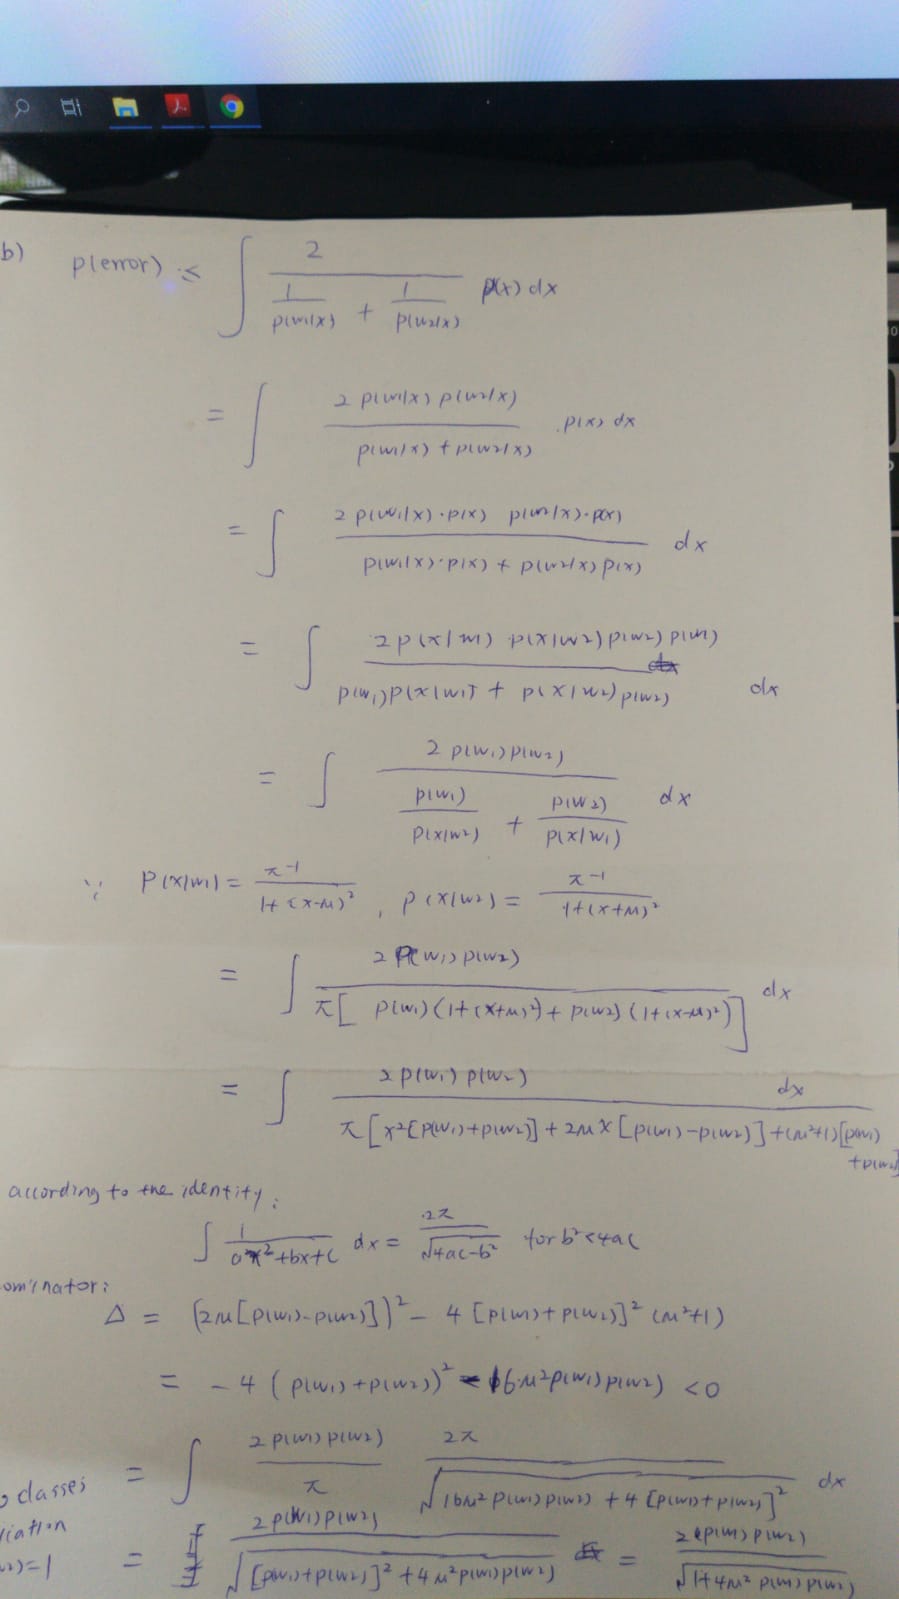 b) p(error) ≤ ∫ 2 / (1/p(w1|x) + 1/p(w2|x)) p(x) dx
= ∫ 2 p(w1|x) p(w2|x) / (p(w1|x) + p(w2|x)) · p(x) dx
= ∫ 2 p(w1|x)·p(x) p(w2|x)·p(x) / (p(w1|x)·p(x) + p(w2|x) p(x)) dx
= ∫ 2 p(x|w1) · p(x|w2) p(w2) p(w1) / (p(w1) p(x|w1) + p(x|w2) p(w2)) dx
= ∫ 2 p(w1) p(w2) / (p(w1)/p(x|w2) + p(w2)/p(x|w1)) dx
∵ p(x|w1) = π⁻¹ / (1+(x-μ)²) , p(x|w2) = π⁻¹ / (1+(x+μ)²)
= ∫ 2 p(w1) p(w2) / (π[ p(w1)(1+(x+μ)²) + p(w2)(1+(x-μ)²)]) dx
= ∫ 2 p(w1) p(w2) / (π[x²[p(w1)+p(w2)] + 2μx[p(w1)-p(w2)] + (μ²+1)[p(w1)+p(w2)]) dx
according to the identity:
∫ 1/(ax²+bx+c) dx = 2π/√(4ac-b²) for b²<4ac
ominator:
Δ = (2μ[p(w1)-p(w2)])² - 4[p(w1)+p(w2)]² (μ²+1)
= -4 (p(w1)+p(w2))² - 16μ²p(w1)p(w2) <0
= ∫ 2 p(w1) p(w2) / π 2π / √(16μ²p(w1)p(w2) + 4[p(w1)+p(w2)]²) dx
o classes
iation
w2)=1
= 2 p(w1) p(w2) / √([p(w1)+p(w2)]² + 4μ²p(w1)p(w2)) = 2 p(w1) p(w2) / √(1+4μ² p(w1) p(w2))